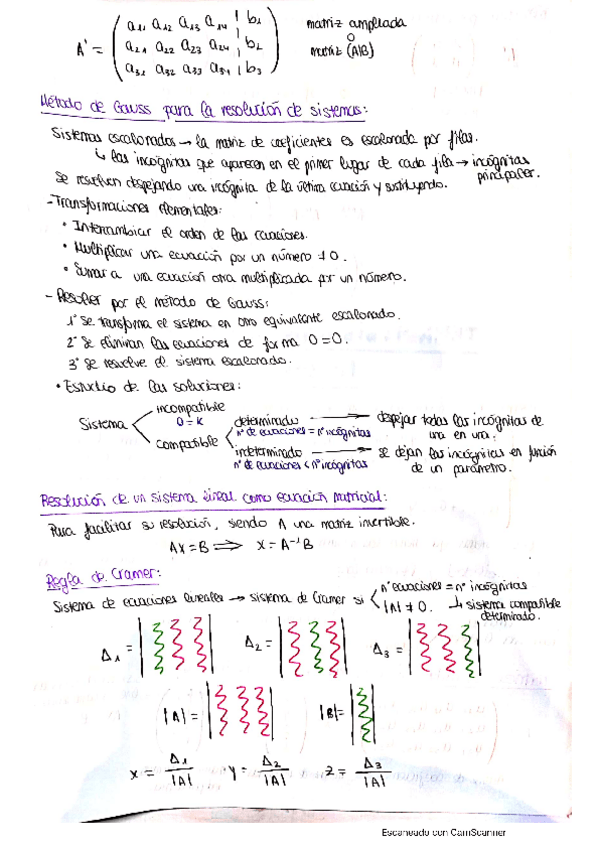 A' = ( a11 a12 a13 a14 | b1
a21 a22 a23 a24 | b2
a31 a32 a33 a34 | b3 )
matriz ampliada
o
matriz (A|B)
Método de Gauss para la resolución de sistemas:
Sistemas escalonados → la matriz de coeficientes es escalonada por filas.
↳ las incógnitas que aparecen en el primer lugar de cada fila → incógnitas
principales.
Se resuelven despejando una incógnita de la última ecuación y sustituyendo.
- Transformaciones elementales:
• Intercambiar el orden de las ecuaciones.
• Multiplicar una ecuación por un número ≠ 0.
• Sumar a una ecuación otra multiplicada por un número.
- Resolver por el método de Gauss:
1º Se transforma el sistema en otro equivalente escalonado.
2º Se eliminan las ecuaciones de forma 0=0.
3º Se resuelve el sistema escalonado.
• Estudio de las soluciones:
Sistema
incompatible
0 = K
compatible
determinado → despejar todas las incógnitas de
una en una.
nº de ecuaciones = nº incógnitas
indeterminado → se dejan las incógnitas en función
de un parámetro.
nº de ecuaciones < nº incógnitas
Resolución de un sistema lineal como ecuación matricial:
Para facilitar su resolución, siendo A una matriz invertible.
AX = B ⟹ X = A⁻¹B
Regla de Cramer:
Sistema de ecuaciones lineales → sistema de Cramer si
nº ecuaciones = nº incógnitas
|A| ≠ 0. ↳ sistema compatible
determinado.
Δ1 = Δ2 = Δ3 =
|A| = |B| =
x = Δ1/|A| y = Δ2/|A| z = Δ3/|A|
Escaneado con CamScanner